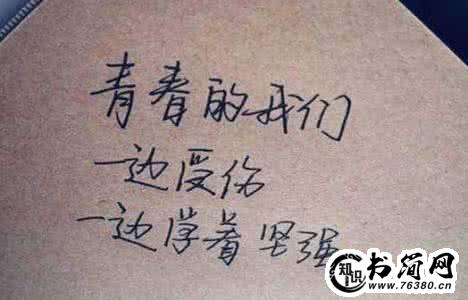 青春的我们
一边受伤
一边学着坚强
知识
书简网
www.76380.cn